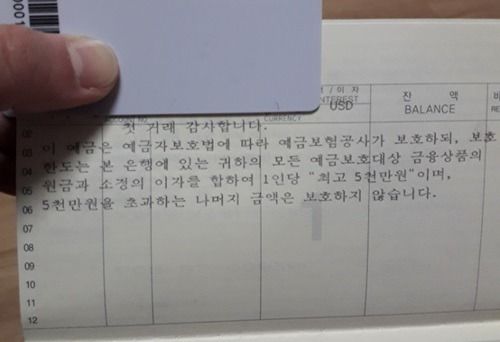 0001
/ 이 자 잔 액 비
INTEREST BALANCE RE
CURRENCY USD
02 첫 거래 감사합니다.
03 이 예금은 예금자보호법에 따라 예금보험공사가 보호하되, 보호
04 한도는 본 은행에 있는 귀하의 모든 예금보호대상 금융상품의
05 원금과 소정의 이자를 합하여 1인당 "최고 5천만원"이며,
06 5천만원을 초과하는 나머지 금액은 보호하지 않습니다.
07
08
09
10
11
12